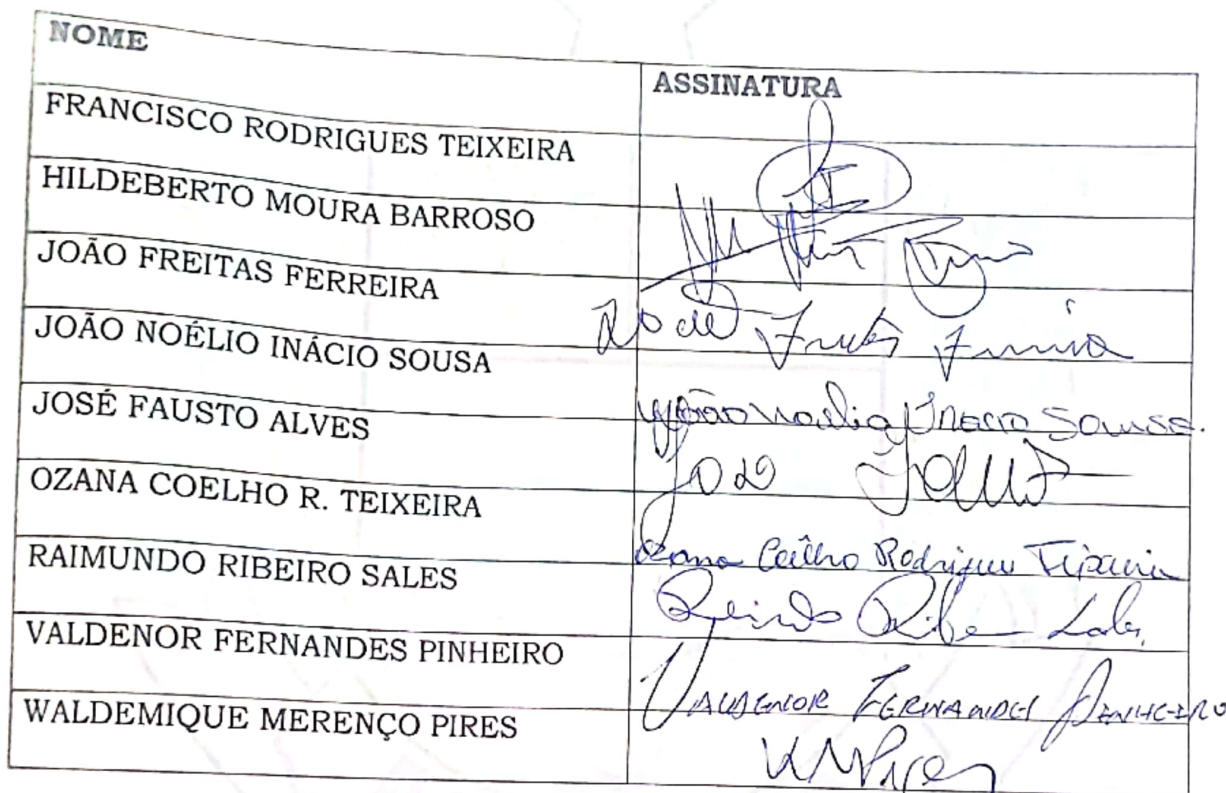 NOME ASSINATURA
FRANCISCO RODRIGUES TEIXEIRA
HILDEBERTO MOURA BARROSO
JOÃO FREITAS FERREIRA
JOÃO NOÉLIO INÁCIO SOUSA João Noelio Inacio Sousa.
JOSÉ FAUSTO ALVES
OZANA COELHO R. TEIXEIRA Coelho Rodrigues Teixeira
RAIMUNDO RIBEIRO SALES
VALDENOR FERNANDES PINHEIRO VALDENOR FERNANDES PINHEIRO
WALDEMIQUE MERENÇO PIRES WMPires